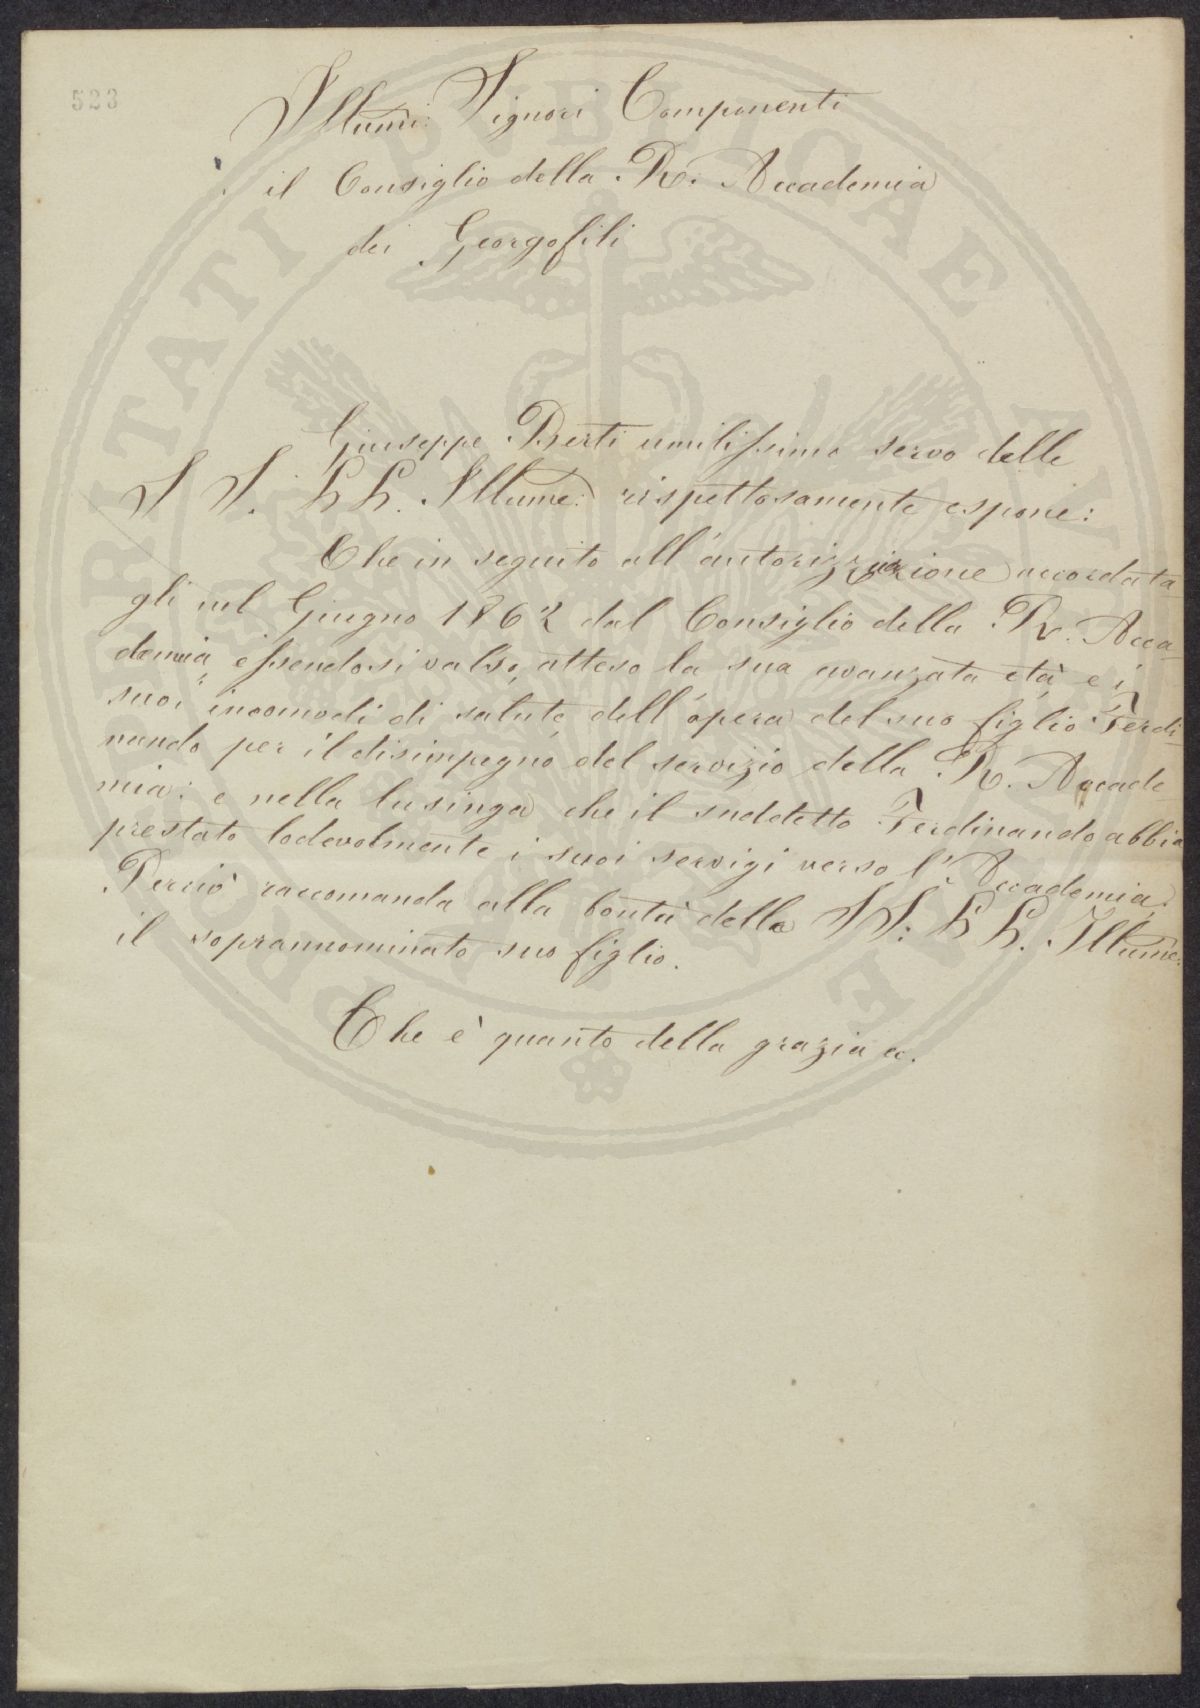 523
Illumi: Signori Componenti
il Consiglio della R. Accademia
dei Georgofili
Giuseppe Berti umilissimo servo delle
S S. LL. Illume: rispettosamente espone:
Che in seguito all'autorizzazione accordata
gli nel Giugno 1862 dal Consiglio della R. Acca-
demia, essendosi valso, atteso la sua avanzata età, e i
suoi incomodi di salute, dell'opera del suo figlio Ferdi-
nando per il disimpegno del servizio della R. Accade-
mia: e nella lusinga che il suddetto Ferdinando abbia
prestato lodevolmente i suoi servigi verso l'Accademia;
Perciò raccomanda alla bontà delle SS: LL. Illume:
il soprannominato suo figlio.
Che è quanto della grazia a.
PROSPERITATI PUBLICAE AUGENDAE